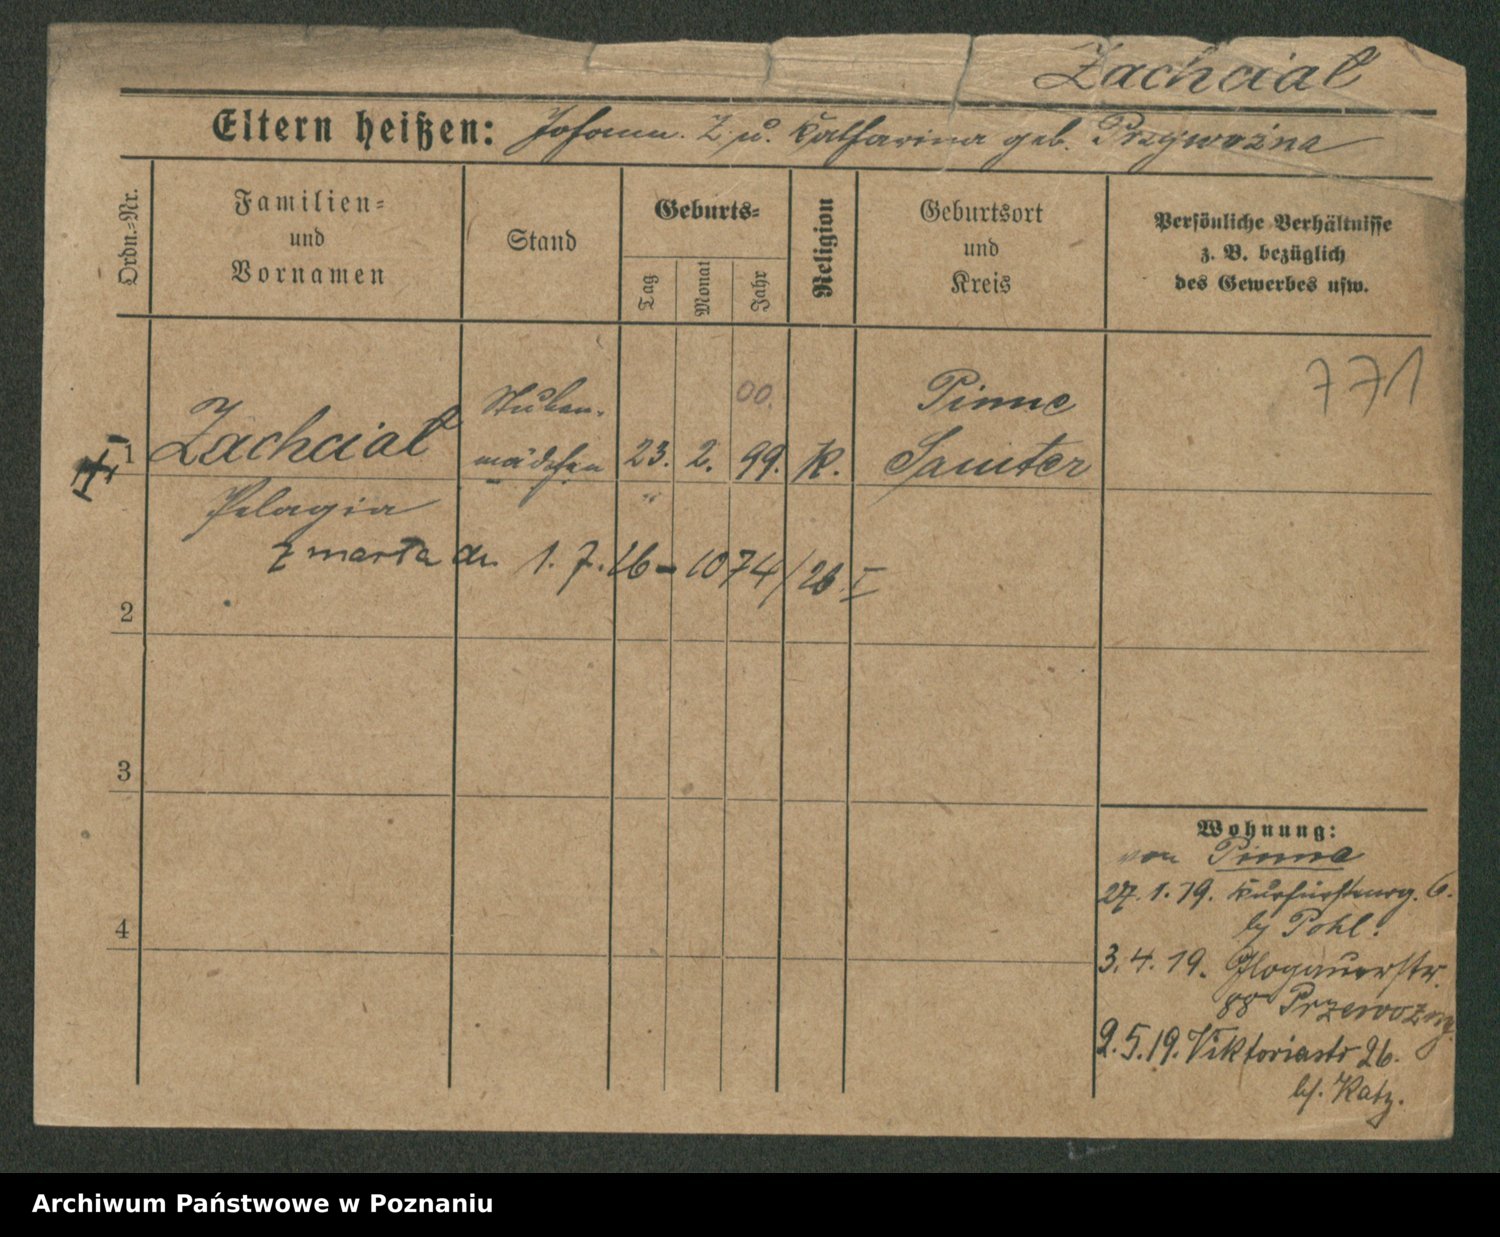 Zachcial
Eltern heißen: Johann Z. u. Katharina geb. Przywożna
Ordn.-Nr.
Familien-
und
Vornamen
Stand
Geburts-
Tag
Monat
Jahr
Religion
Geburtsort
und
Kreis
Persönliche Verhältnisse
z. B. bezüglich
des Gewerbes usw.
771
1 Zachcial Stuben- 00. Pinne
mädchen 23. 2. 99. K. Samter
Pelagia
zmarła dn 1. 7. 26 - 1074/26 I
2
3
4
Wohnung:
von Pinne
27. 1. 19. Kurfürstenrg. 6.
by Pohl.
3. 4. 19. Glogauerstr.
88 Przewozny
2. 5. 19. Viktoriastr 26.
bf. Katz.
Archiwum Państwowe w Poznaniu